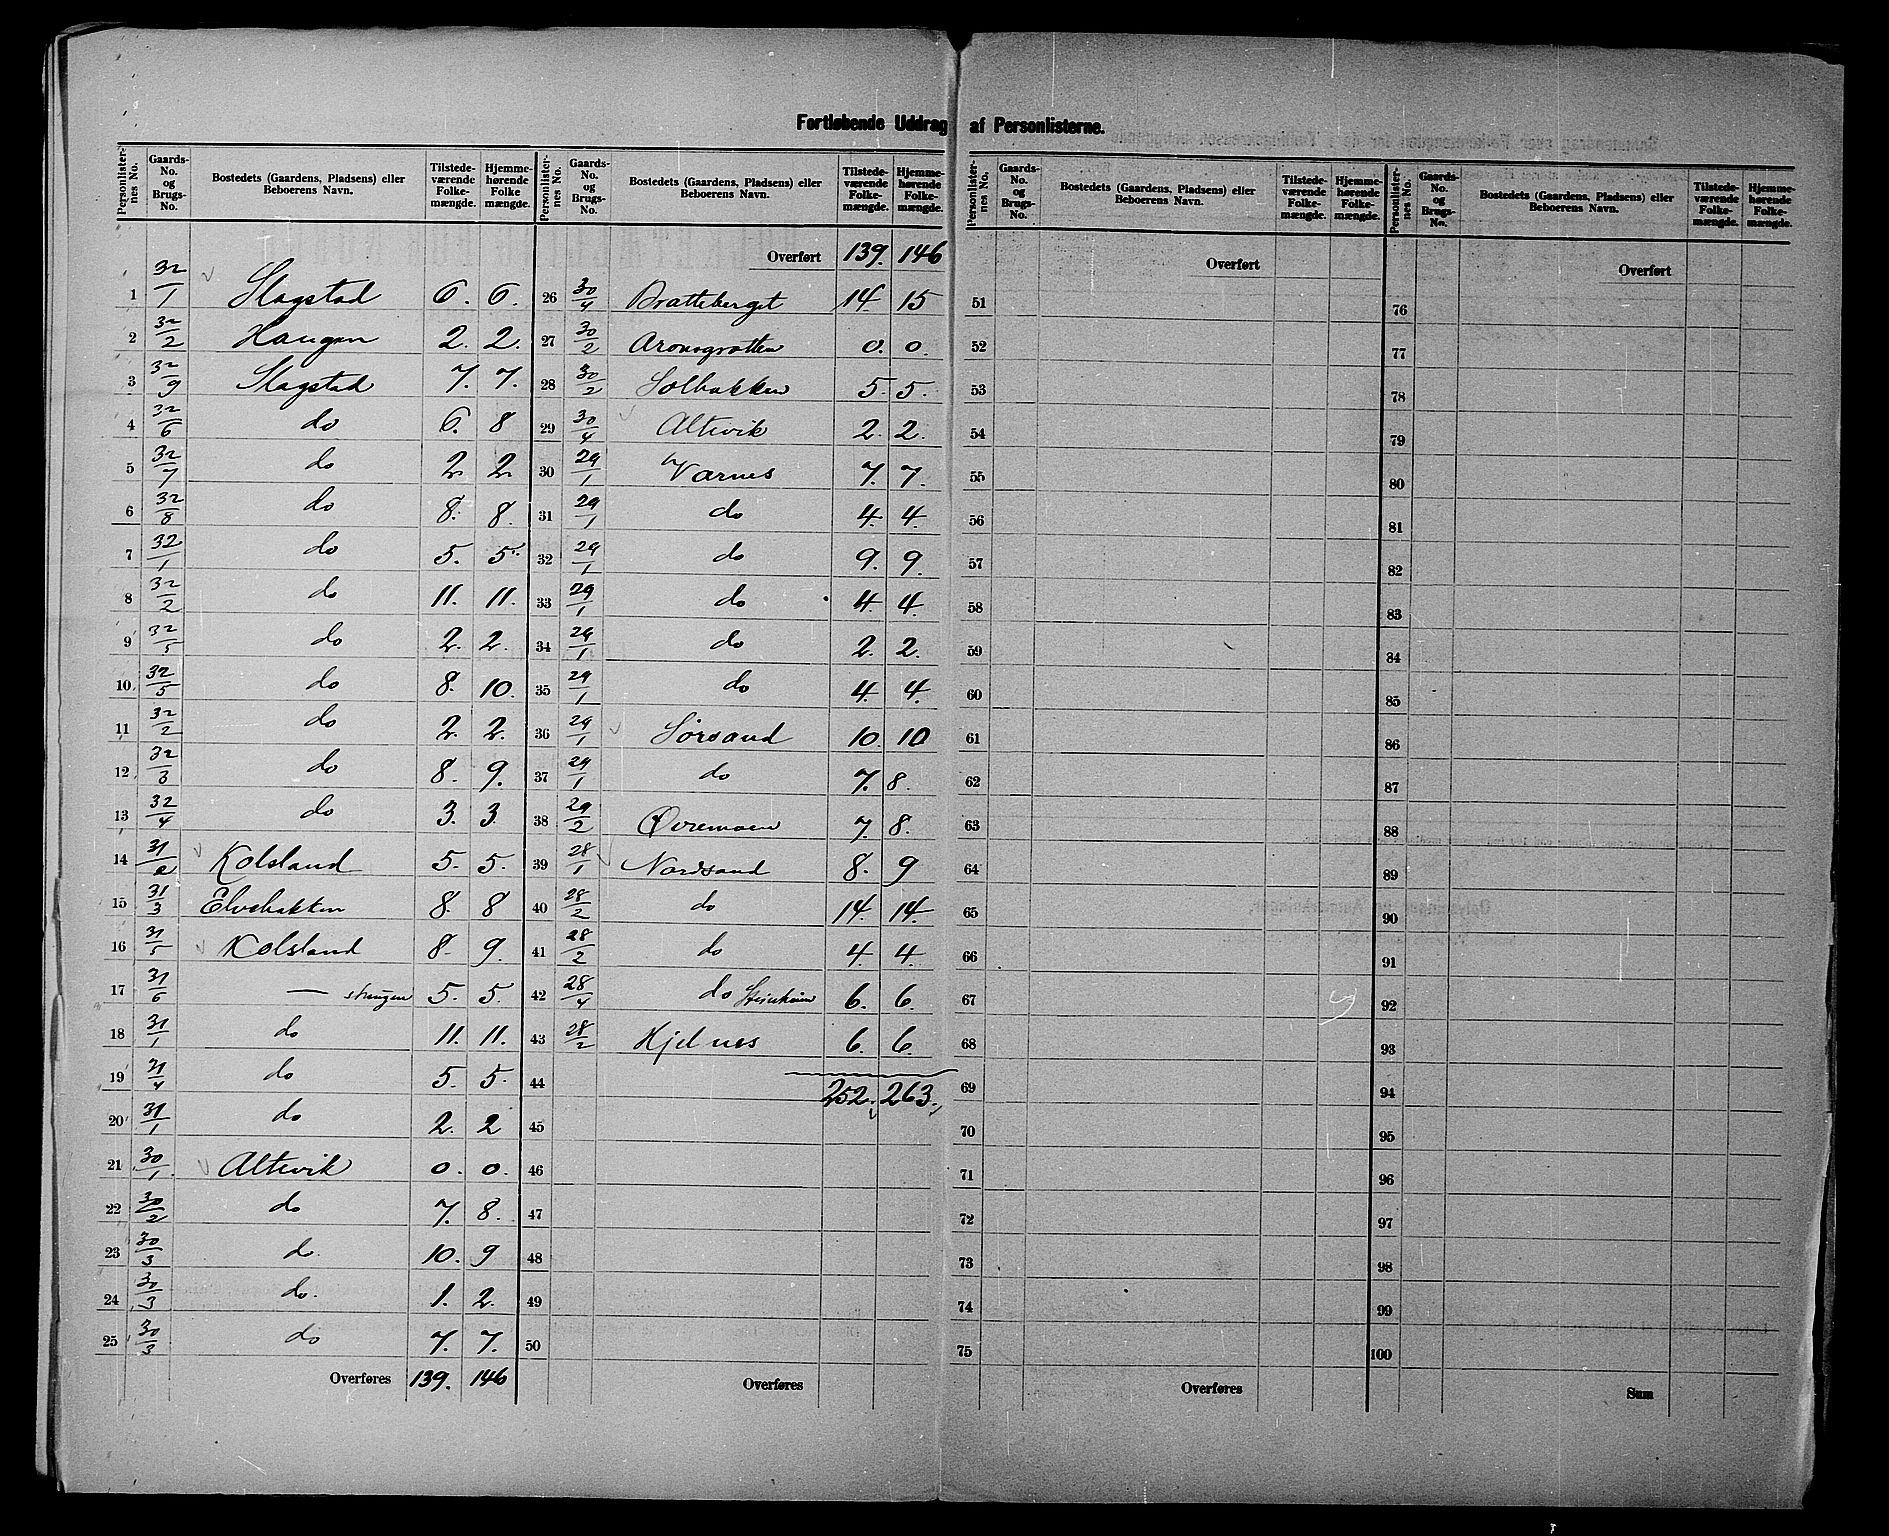 Fortløbende Uddrag af Personlisterne.
Personlisternes No. | Gaards-No. og Brugs-No. | Bostedets (Gaardens, Pladsens) eller Beboerens Navn. | Tilstedeværende Folkemængde. | Hjemmehørende Folkemængde.
1 32/1 Slagstad 6. 6.
2 32/2 Haugen 2. 2.
3 32/9 Slagstad 7. 7.
4 32/6 do 6. 8
5 32/7 do 2 2
6 32/8 do 8. 8.
7 32/1 do 5. 5.
8 32/2 do 11. 11.
9 32/5 do 2. 2.
10 32/5 do 8. 10.
11 32/2 do 2. 2.
12 32/3 do 8. 9.
13 32/4 do 3. 3.
14 31/2 Kolsland 5. 5.
15 31/3 Elvebakken 8. 8
16 31/5 Kolsland 8. 9.
17 31/6 — strengen 5. 5.
18 31/1 do 11. 11.
19 31/4 do 5. 5.
20 31/1 do 2. 2
21 30/1 Altevik 0. 0.
22 30/2 do 7. 8.
23 30/3 do. 10. 9
24 30/3 do. 1. 2.
25 30/3 do 7. 7.
Overføres 139. 146
Overført 139. 146
26 30/4 Bratteberget 14. 15
27 30/2 Aronsgrotten 0. 0.
28 30/2 Solbakken 5. 5.
29 30/4 Altevik 2. 2.
30 29/1 Varnes 7. 7.
31 29/1 do 4. 4.
32 29/1 do 9. 9.
33 29/1 do 4. 4.
34 29/1 do 2. 2.
35 29/1 do 4. 4.
36 29/1 Sørsand 10. 10
37 29/1 do 7. 8.
38 29/2 Øvremoen 7. 8.
39 28/1 Nordsand 8. 9
40 28/2 do 14. 14.
41 28/2 do 4. 4.
42 28/4 do Steinheim 6. 6.
43 28/2 Hjelnes 6. 6.
44 252. 263.
45
46
47
48
49
50
Overføres
Personlisternes No. | Gaards-No. og Brugs-No. | Bostedets (Gaardens, Pladsens) eller Beboerens Navn. | Tilstedeværende Folkemængde. | Hjemmehørende Folkemængde.
Overført
51
52
53
54
55
56
57
58
59
60
61
62
63
64
65
66
67
68
69
70
71
72
73
74
75
Overføres
Overført
76
77
78
79
80
81
82
83
84
85
86
87
88
89
90
91
92
93
94
95
96
97
98
99
100
Sum